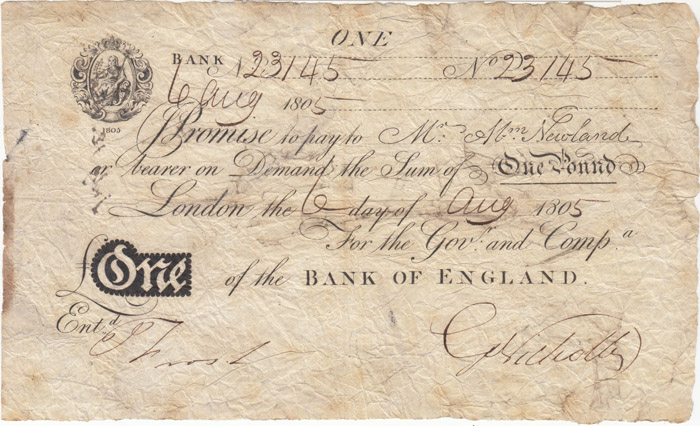 ONE
BANK 123145 No 23145
6 Aug 1805
1805
I Promise to pay to Mr. Abm Newland
or bearer on Demand the Sum of One Pound
London the 6 day of Aug 1805
For the Govr. and Compa.
£One of the BANK OF ENGLAND.
Entd.